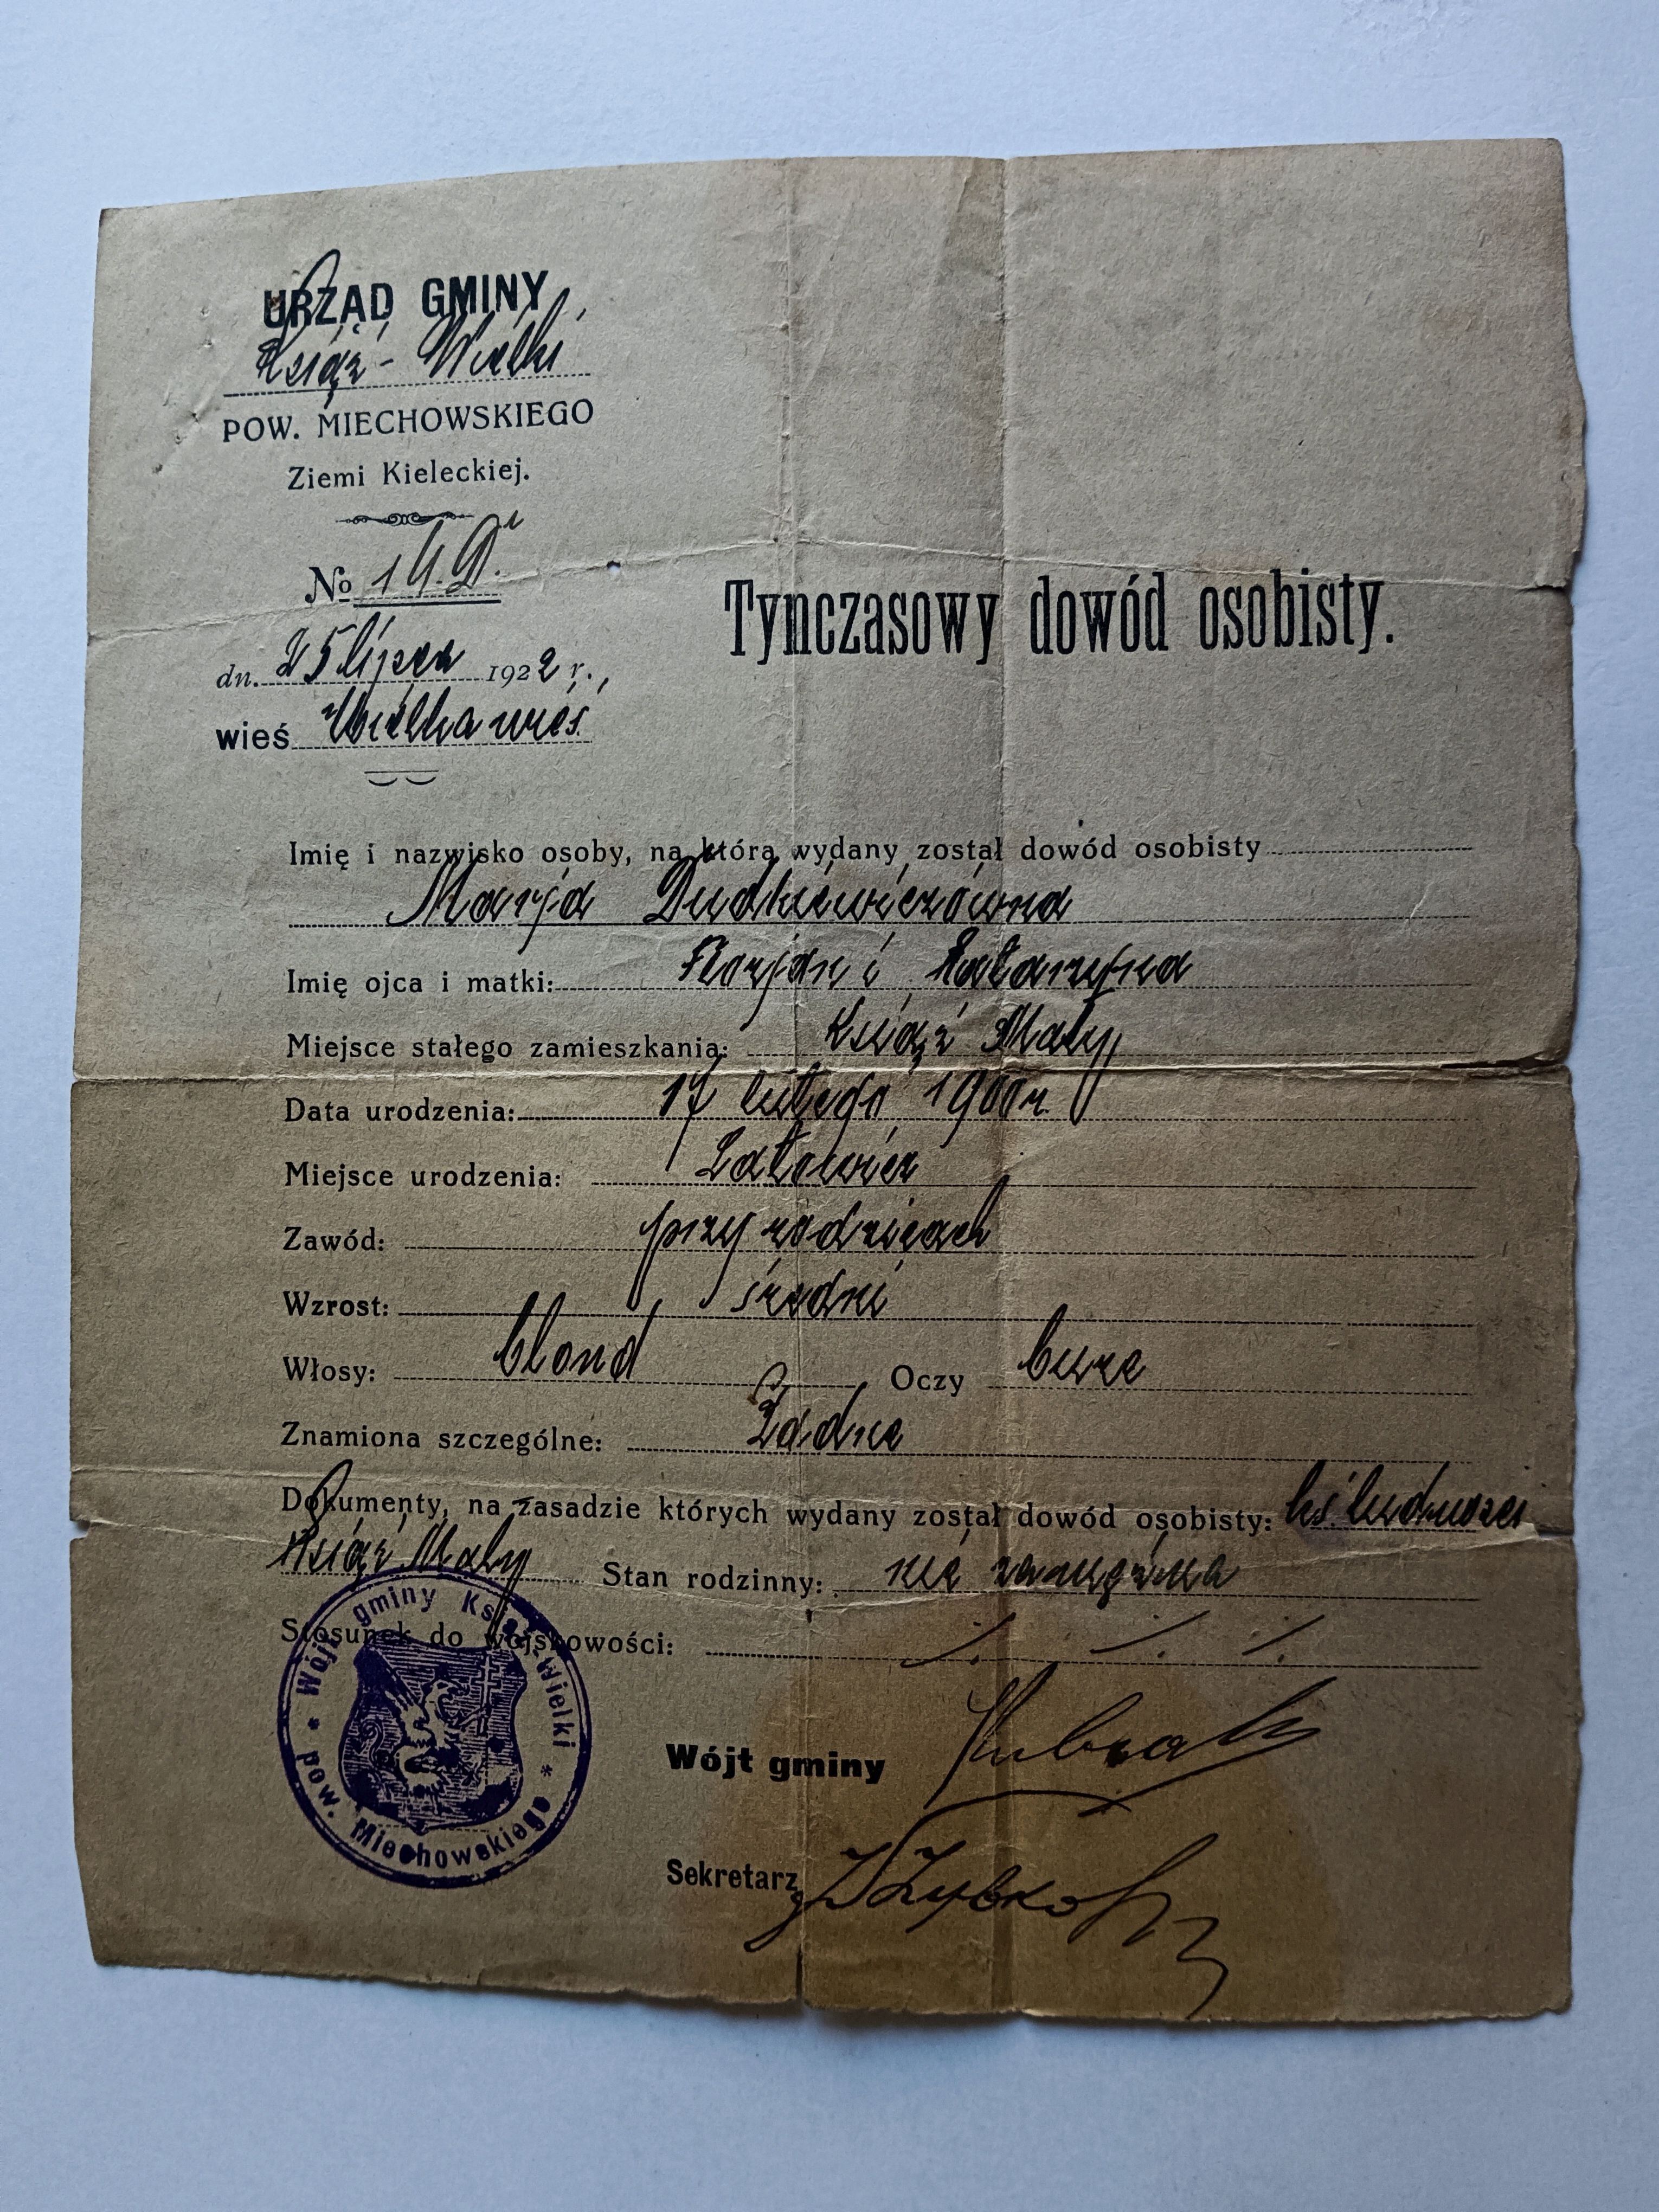 URZĄD GMINY
Książ-Wielki
POW. MIECHOWSKIEGO
Ziemi Kieleckiej.
No
dn. 25 lipca 1922 r.,
wieś Wielka wieś.
Tynczasowy dowód osobisty.
Imię i nazwisko osoby, na którą wydany został dowód osobisty
Marja Dudkiewiczówna
Imię ojca i matki: Florjan i Katarzyna
Miejsce stałego zamieszkania: Książ Mały
Data urodzenia: 17 lutego 1900 r.
Miejsce urodzenia:
Zawód: przy rodzicach
Wzrost: średni
Włosy: blond Oczy bure
Znamiona szczególne: Żadne
Dokumenty, na zasadzie których wydany został dowód osobisty: ks. ludności
Książ Mały Stan rodzinny: nie zamężna
Stosunek do wojskowości:
Wójt gminy Książ-Wielki
* pow. Miechowskiego *
Wójt gminy
Sekretarz